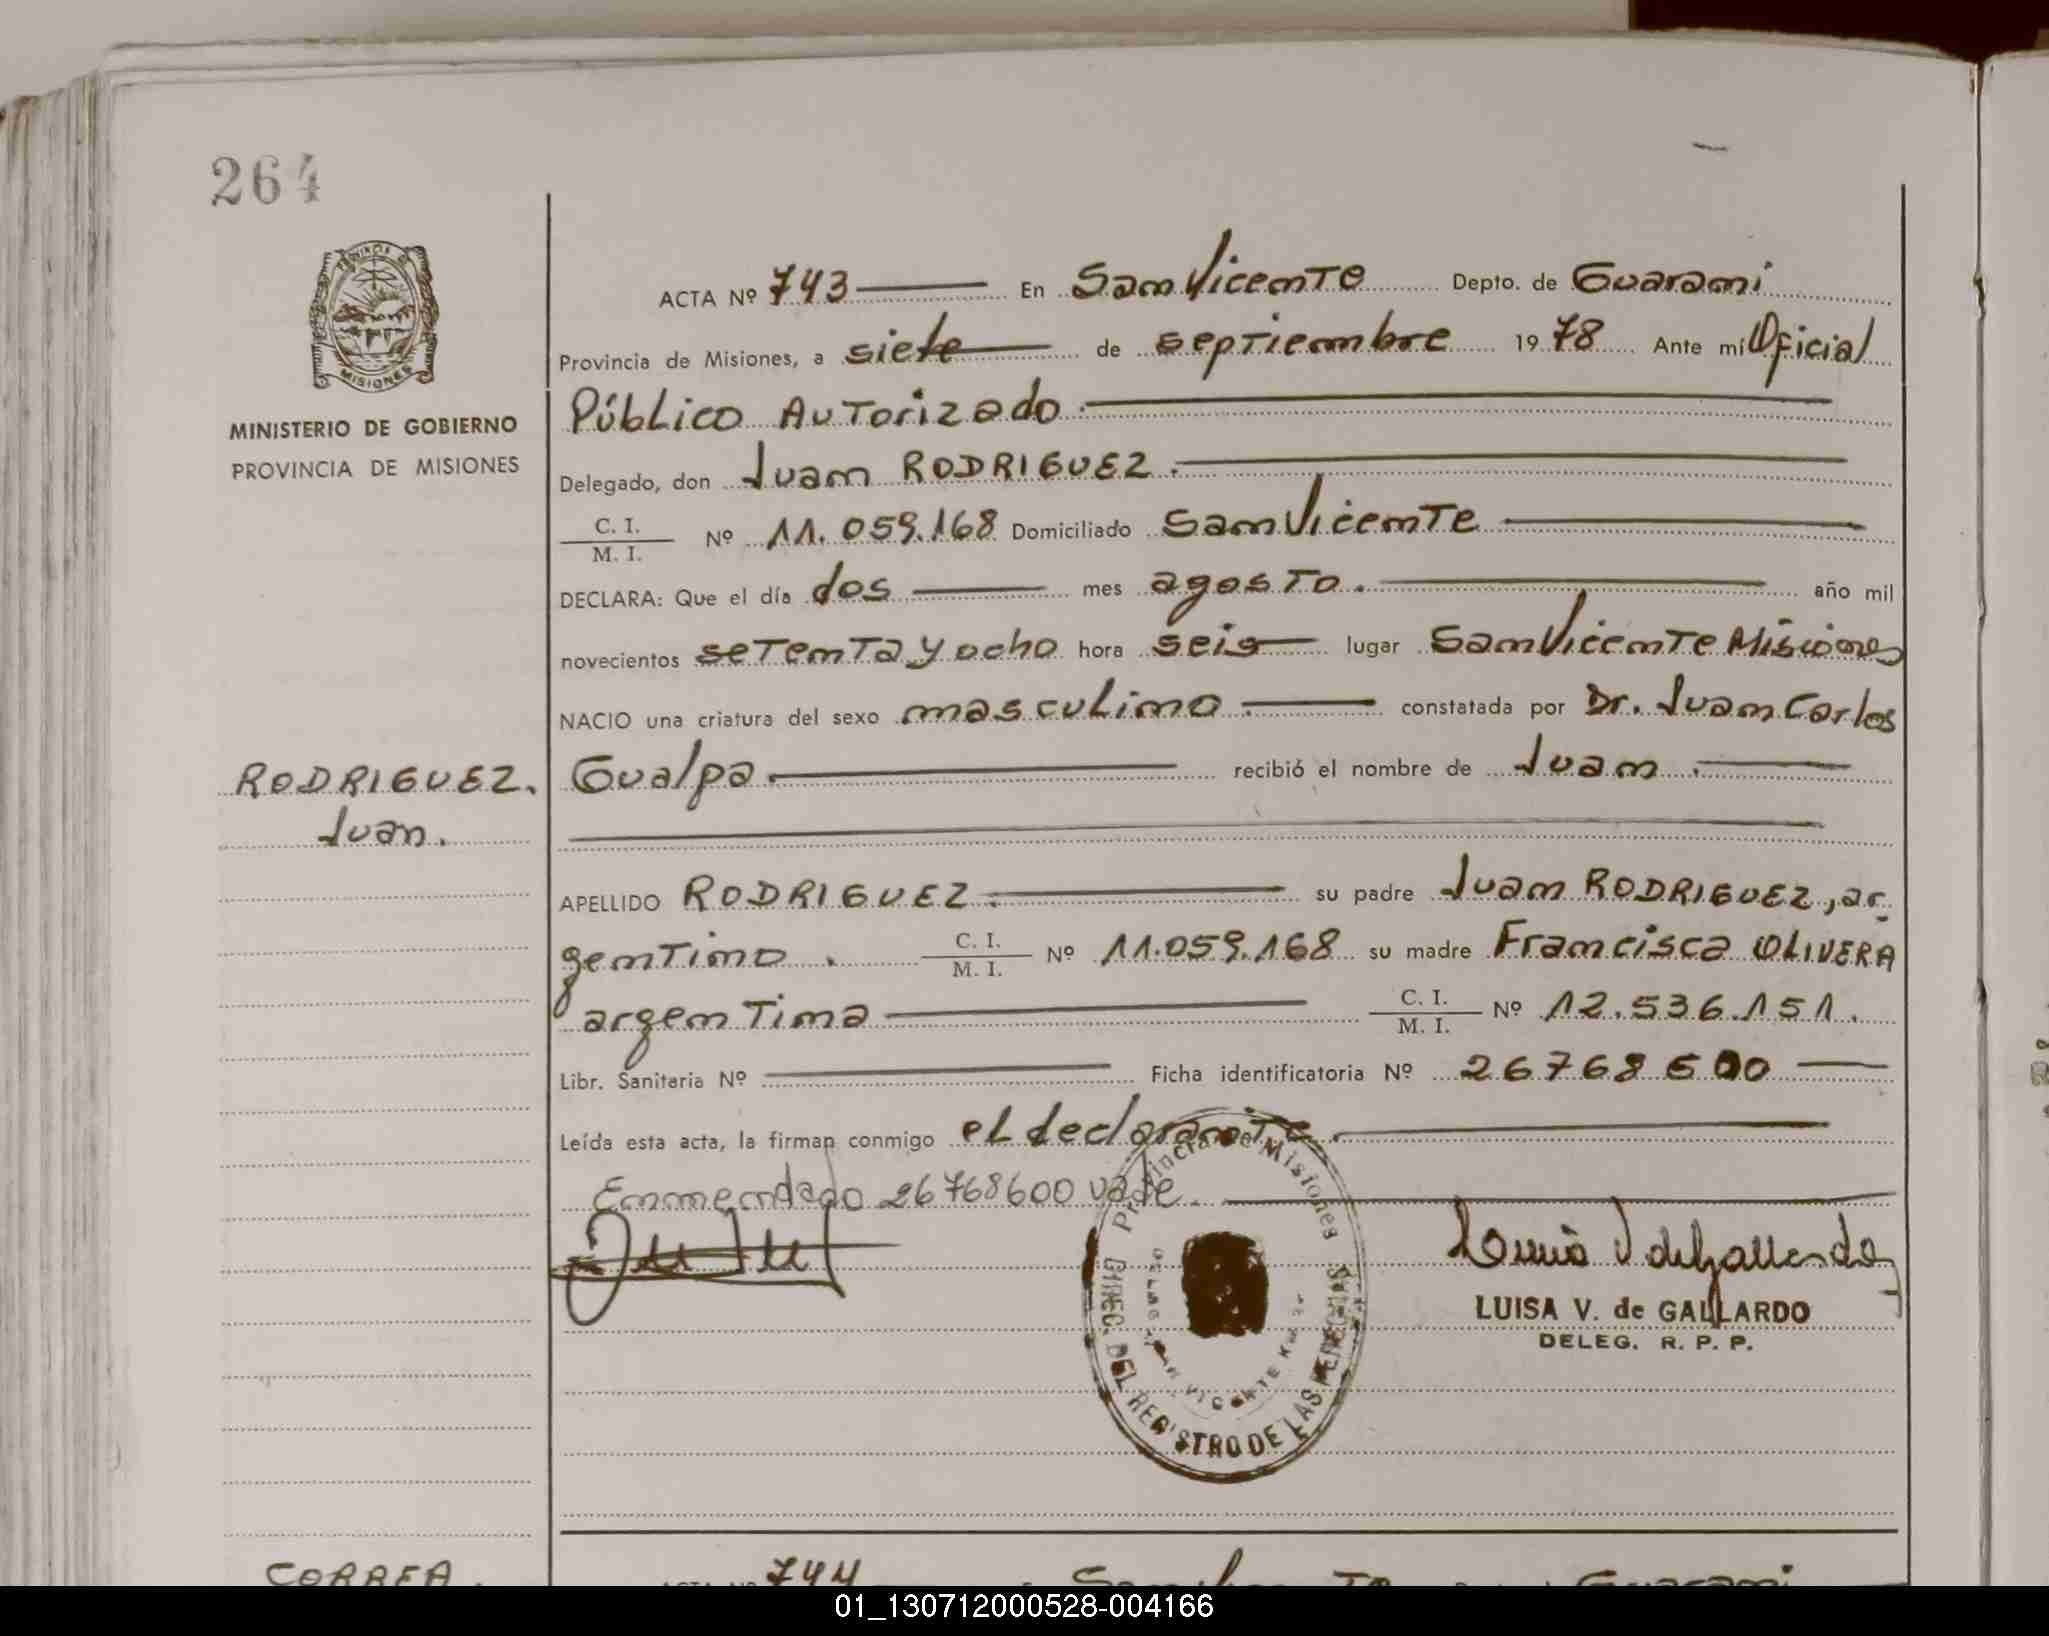 264
PROVINCIA DE
MISIONES
MINISTERIO DE GOBIERNO
PROVINCIA DE MISIONES
RODRIGUEZ.
Juan.
ACTA Nº 743 En San Vicente Depto. de Guarani
Provincia de Misiones, a siete de septiembre 1978 Ante mi Oficial
Público Autorizado.
Delegado, don Juan RODRIGUEZ.
C. I.
M. I. Nº 11.059.168 Domiciliado San Vicente
DECLARA: Que el día dos mes agosto. año mil
novecientos setenta y ocho hora seis lugar San Vicente Misiones
NACIO una criatura del sexo masculino. constatada por Dr. Juan Carlos
Gualpa. recibió el nombre de Juan.
APELLIDO RODRIGUEZ. su padre Juan RODRIGUEZ, ar-
gentino. C. I.
M. I. Nº 11.059.168 su madre Francisca OLIVERA
argentina C. I.
M. I. Nº 12.536.151.
Libr. Sanitaria Nº Ficha identificatoria Nº 26768600
Leída esta acta, la firman conmigo el declarante.
Enmendado 26768600 vale.
Provincia de Misiones
DIREC. DEL REGISTRO DE LAS PERSONAS
Luisa V de Gallardo
LUISA V. de GALLARDO
DELEG. R. P. P.
CORREA.
ACTA Nº 744 En San Vicente Depto. de Guarani
01_130712000528-004166